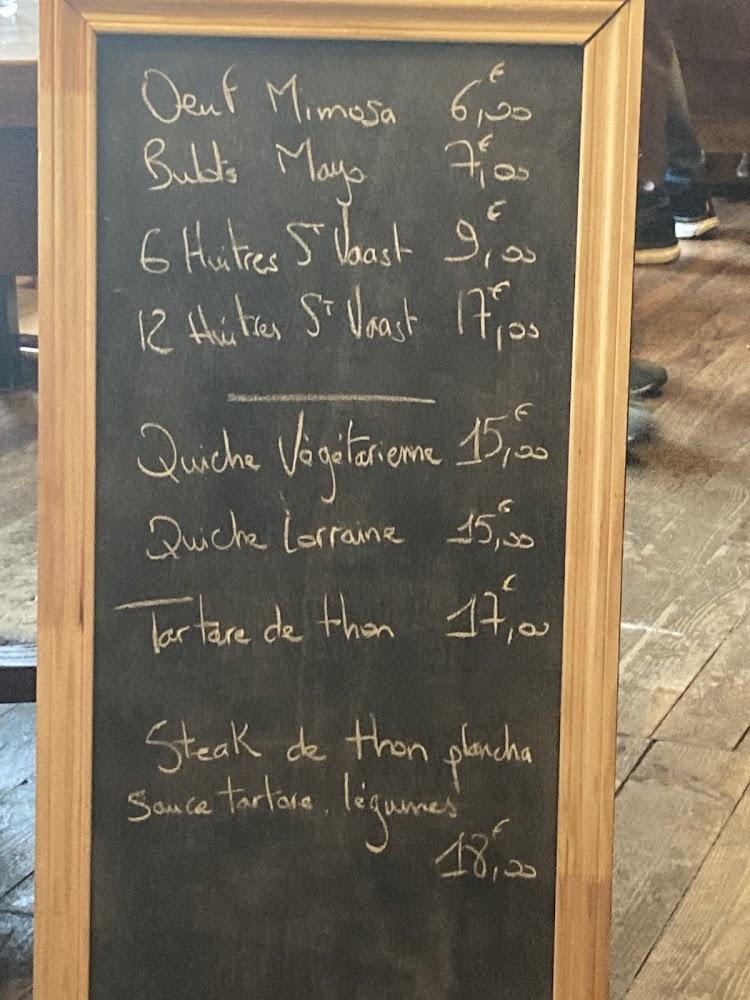 Oeuf Mimosa 6,00€
Bulots Mayo 7,00€
6 Huîtres St Vaast 9,00€
12 Huîtres St Vaast 17,00€
Quiche Végétarienne 15,00€
Quiche Lorraine 15,00€
Tartare de thon 17,00€
Steak de thon plancha
Sauce tartare, légumes
18,00€